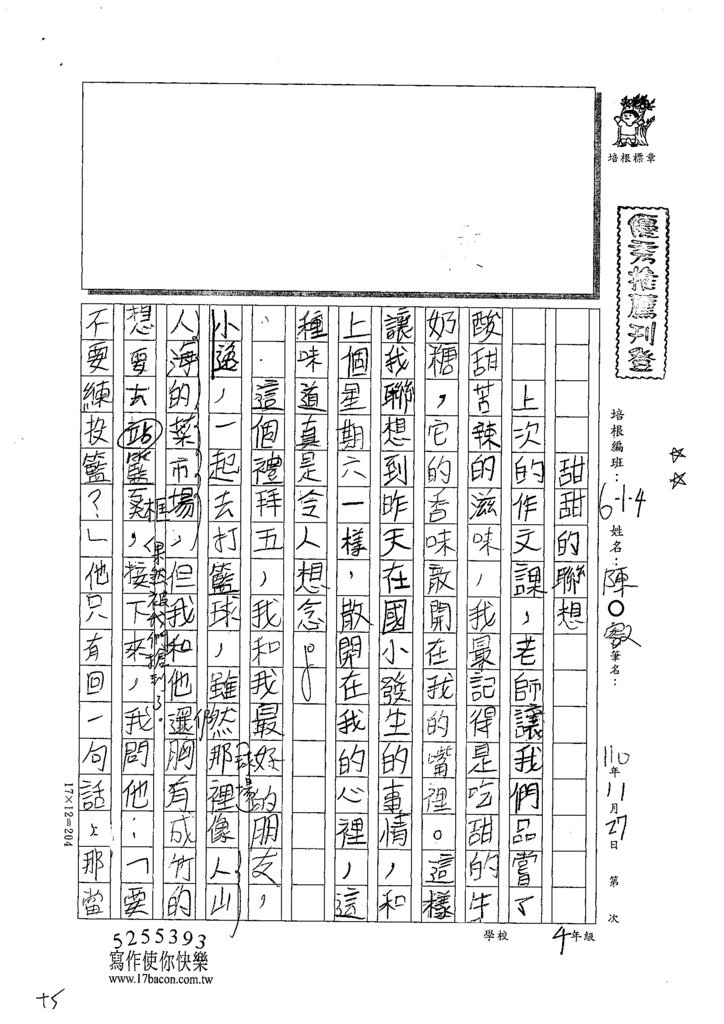 培根標章
優秀推薦刊登
培根編班：6-1-4 姓名：陳○毅 筆名：
110年11月27日 第 次
學校 4年級
甜甜的聯想
上次的作文課，老師讓我們品嘗了
酸甜苦辣的滋味，我最記得是吃甜的牛
奶糖，它的香味散開在我的嘴裡。這樣
讓我聯想到昨天在國小發生的事情，和
上個星期六一樣，散開在我的心裡，這
種味道真是令人想念。
這個禮拜五，我和我最好的朋友，
小遠，一起去打籃球，雖然那裡像人山
人海的菜市場，但我和他還胸有成竹的
們
球場
想要去站籃框，接下來，我問他：「要
果然被我們搶到了。
不要練投籃？」他只有回一句話：那當
17×12=204
5255393
寫作使你快樂
www.17bacon.com.tw
+5